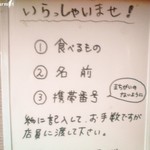 いらっしゃいませ!
① 食べるもの
② 名前
③ 携帯番号
まちがいの
ないように
紙に記入して、お手数ですが
店員に渡して下さい。